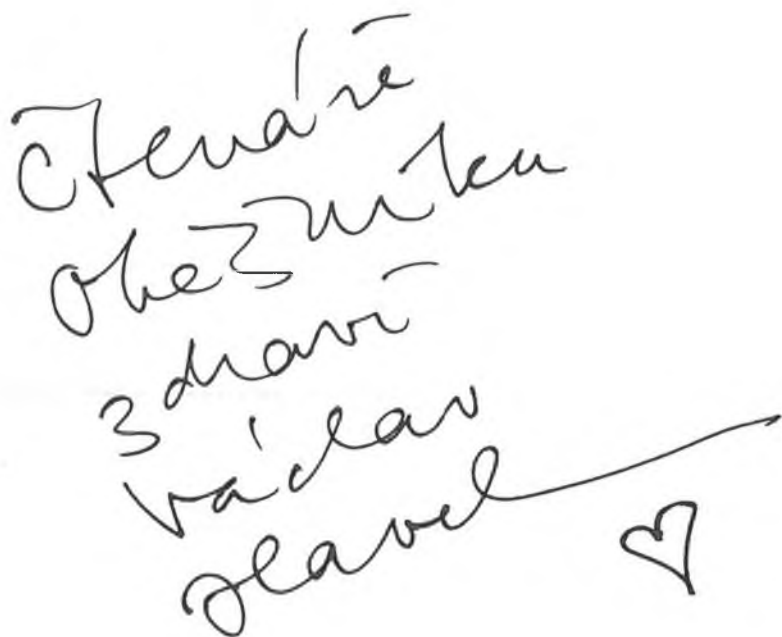 čtenáře
Oběžníku
zdraví
Václav
Havel